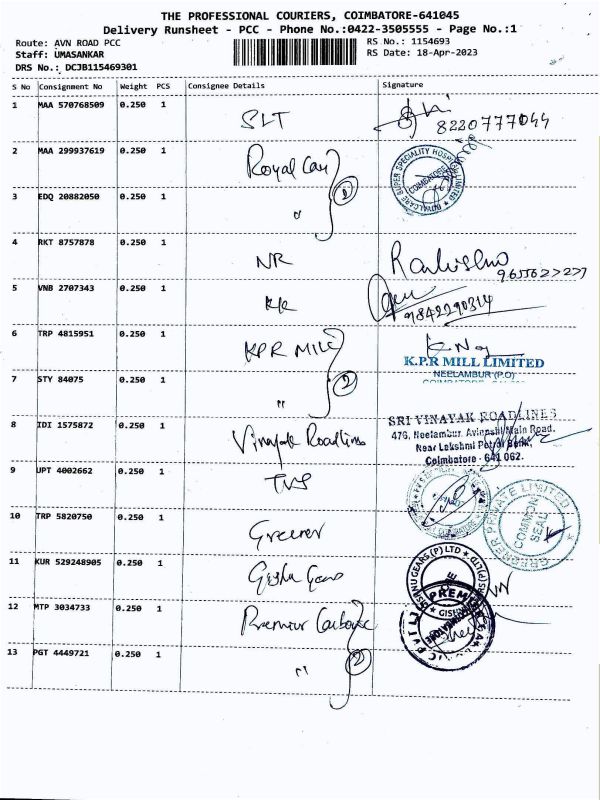 THE PROFESSIONAL COURIERS, COIMBATORE-641045
Delivery Runsheet - PCC - Phone No.:0422-3505555 - Page No.:1
Route: AVN ROAD PCC RS No.: 1154693
Staff: UMASANKAR RS Date: 18-Apr-2023
DRS No.: DCJB115469301
S No Consignment No Weight PCS Consignee Details Signature
1 MAA 570768509 0.250 1 SLT 8220777044
2 MAA 299937619 0.250 1 Royal Care ROYALCARE SUPER SPECIALITY HOSPITAL LIMITED COIMBATORE
2
3 EDQ 20882050 0.250 1 "
4 RKT 8757878 0.250 1 NR
5 VNB 2707343 0.250 1 KK 9842290314
6 TRP 4815951 0.250 1 KPR MILL
K.P.R MILL LIMITED
NEELAMBUR (P.O)
7 STY 84075 0.250 1 " 2
SRI VINAYAK ROADLINES
8 IDI 1575872 0.250 1 Vinayak Roadlines 476, Neelambur, Avinashi Main Road,
Near Lakshmi Petrol Bunk,
Coimbatore - 641 062.
9 UPT 4002662 0.250 1 TVS
10 TRP 5820750 0.250 1 Greener PRIVATE LIMITED COMMON SEAL
11 KUR 529248905 0.250 1 GISHNU GEARS (P) LTD
12 MTP 3034733 0.250 1 Premier PREMIER
13 PGT 4449721 0.250 1 " 2